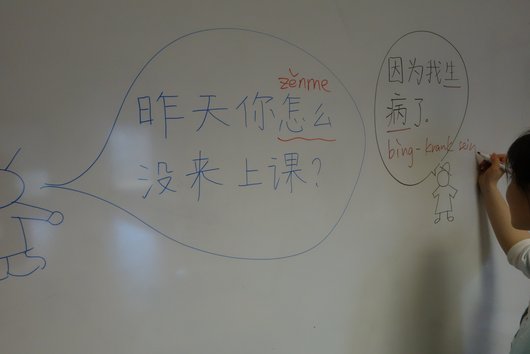 zěnme
昨天你怎么
没来上课?
因为我生
病了.
bìng-krank sein